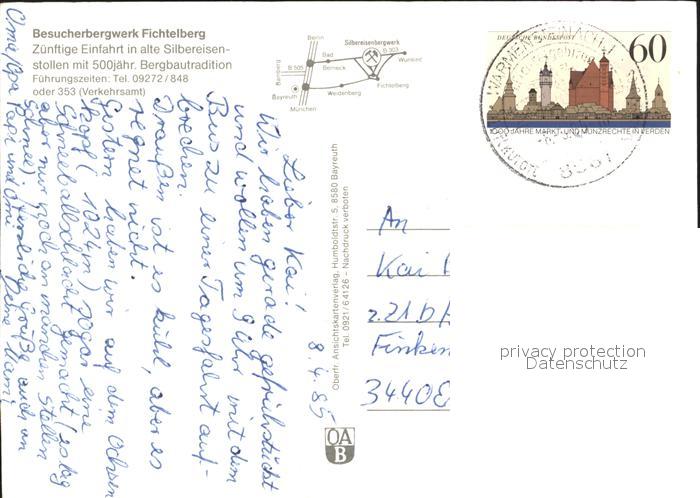 Besucherbergwerk Fichtelberg
Zünftige Einfahrt in alte Silbereisen-
stollen mit 500jähr. Bergbautradition
Führungszeiten: Tel. 09272/848
oder 353 (Verkehrsamt)
Berlin
Silbereisenbergwerk
B 303
Bad
Berneck
Wunsiedel
B 505
Bamberg
Fichtelberg
Bayreuth
Weidenberg
München
DEUTSCHE BUNDESPOST
60
1000 JAHRE MARKT- UND MÜNZRECHTE IN VERDEN
8.4.85
Lieber Kai!
Wir haben gerade gefrühstückt
und wollen um 9 Uhr mit dem
Bus zu einer Tagesfahrt auf-
brechen.
Draußen ist es kühl, aber es
regnet nicht.
Gestern haben wir auf dem Ochsen
kopf (1024 m) sogar eine
Schneeballschlacht gemacht (es lag
aber nur noch an manchen Stellen
Schnee)
Herzliche Grüße auch an
Oma, Opa, Papi und Omi Deine Mami
Oberfr. Ansichtskartenverlag, Humboldtstr. 5, 8580 Bayreuth
Tel. 0921/64126 – Nachdruck verboten
OA
B
An
Kai
z.Zt. b/
Finken
3440 E
privacy protection
Datenschutz